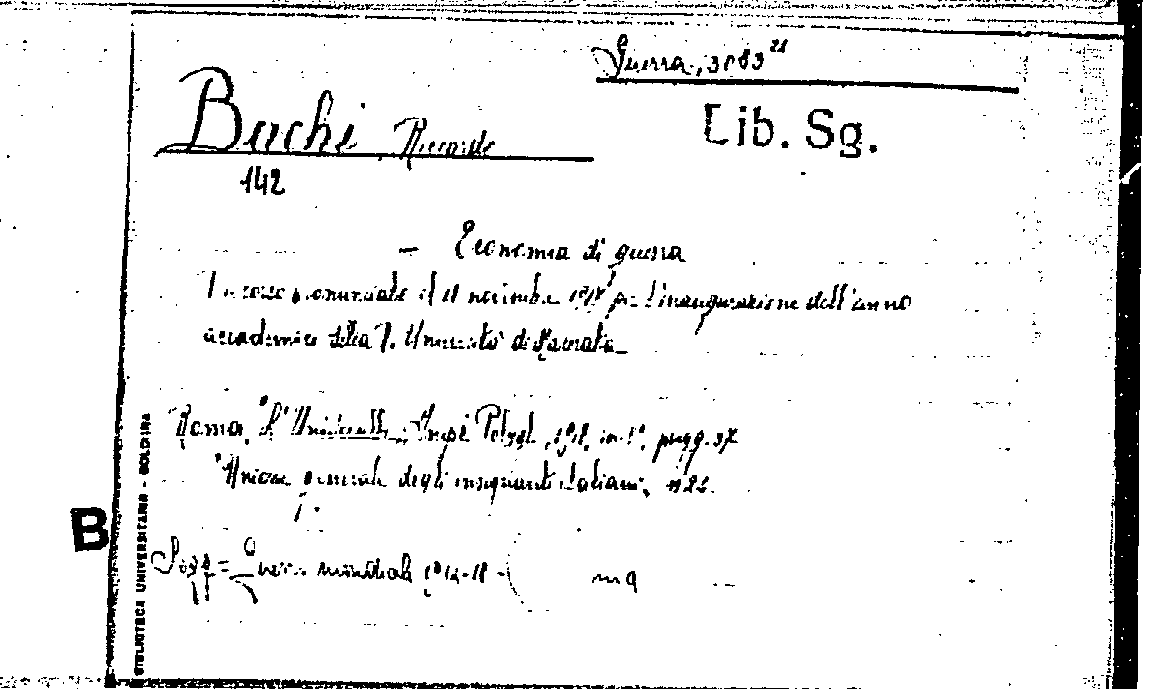 Guerra, 3083 21
Bachi Riccardo
Lib. Sg.
142
— Economia di guerra
Discorso pronunciato il 11 novembre 1917 per l'inaugurazione dell'anno
accademico della R. Università di Macerata
Roma, "L'Universelle" Impr. Poligl., 1918, in-8°, pagg. 37
"Unione generale degli insegnanti italiani", n 22.
B
Sogg = Guerra mondiale 1914-18 -
BIBLIOTECA UNIVERSITARIA - BOLOGNA